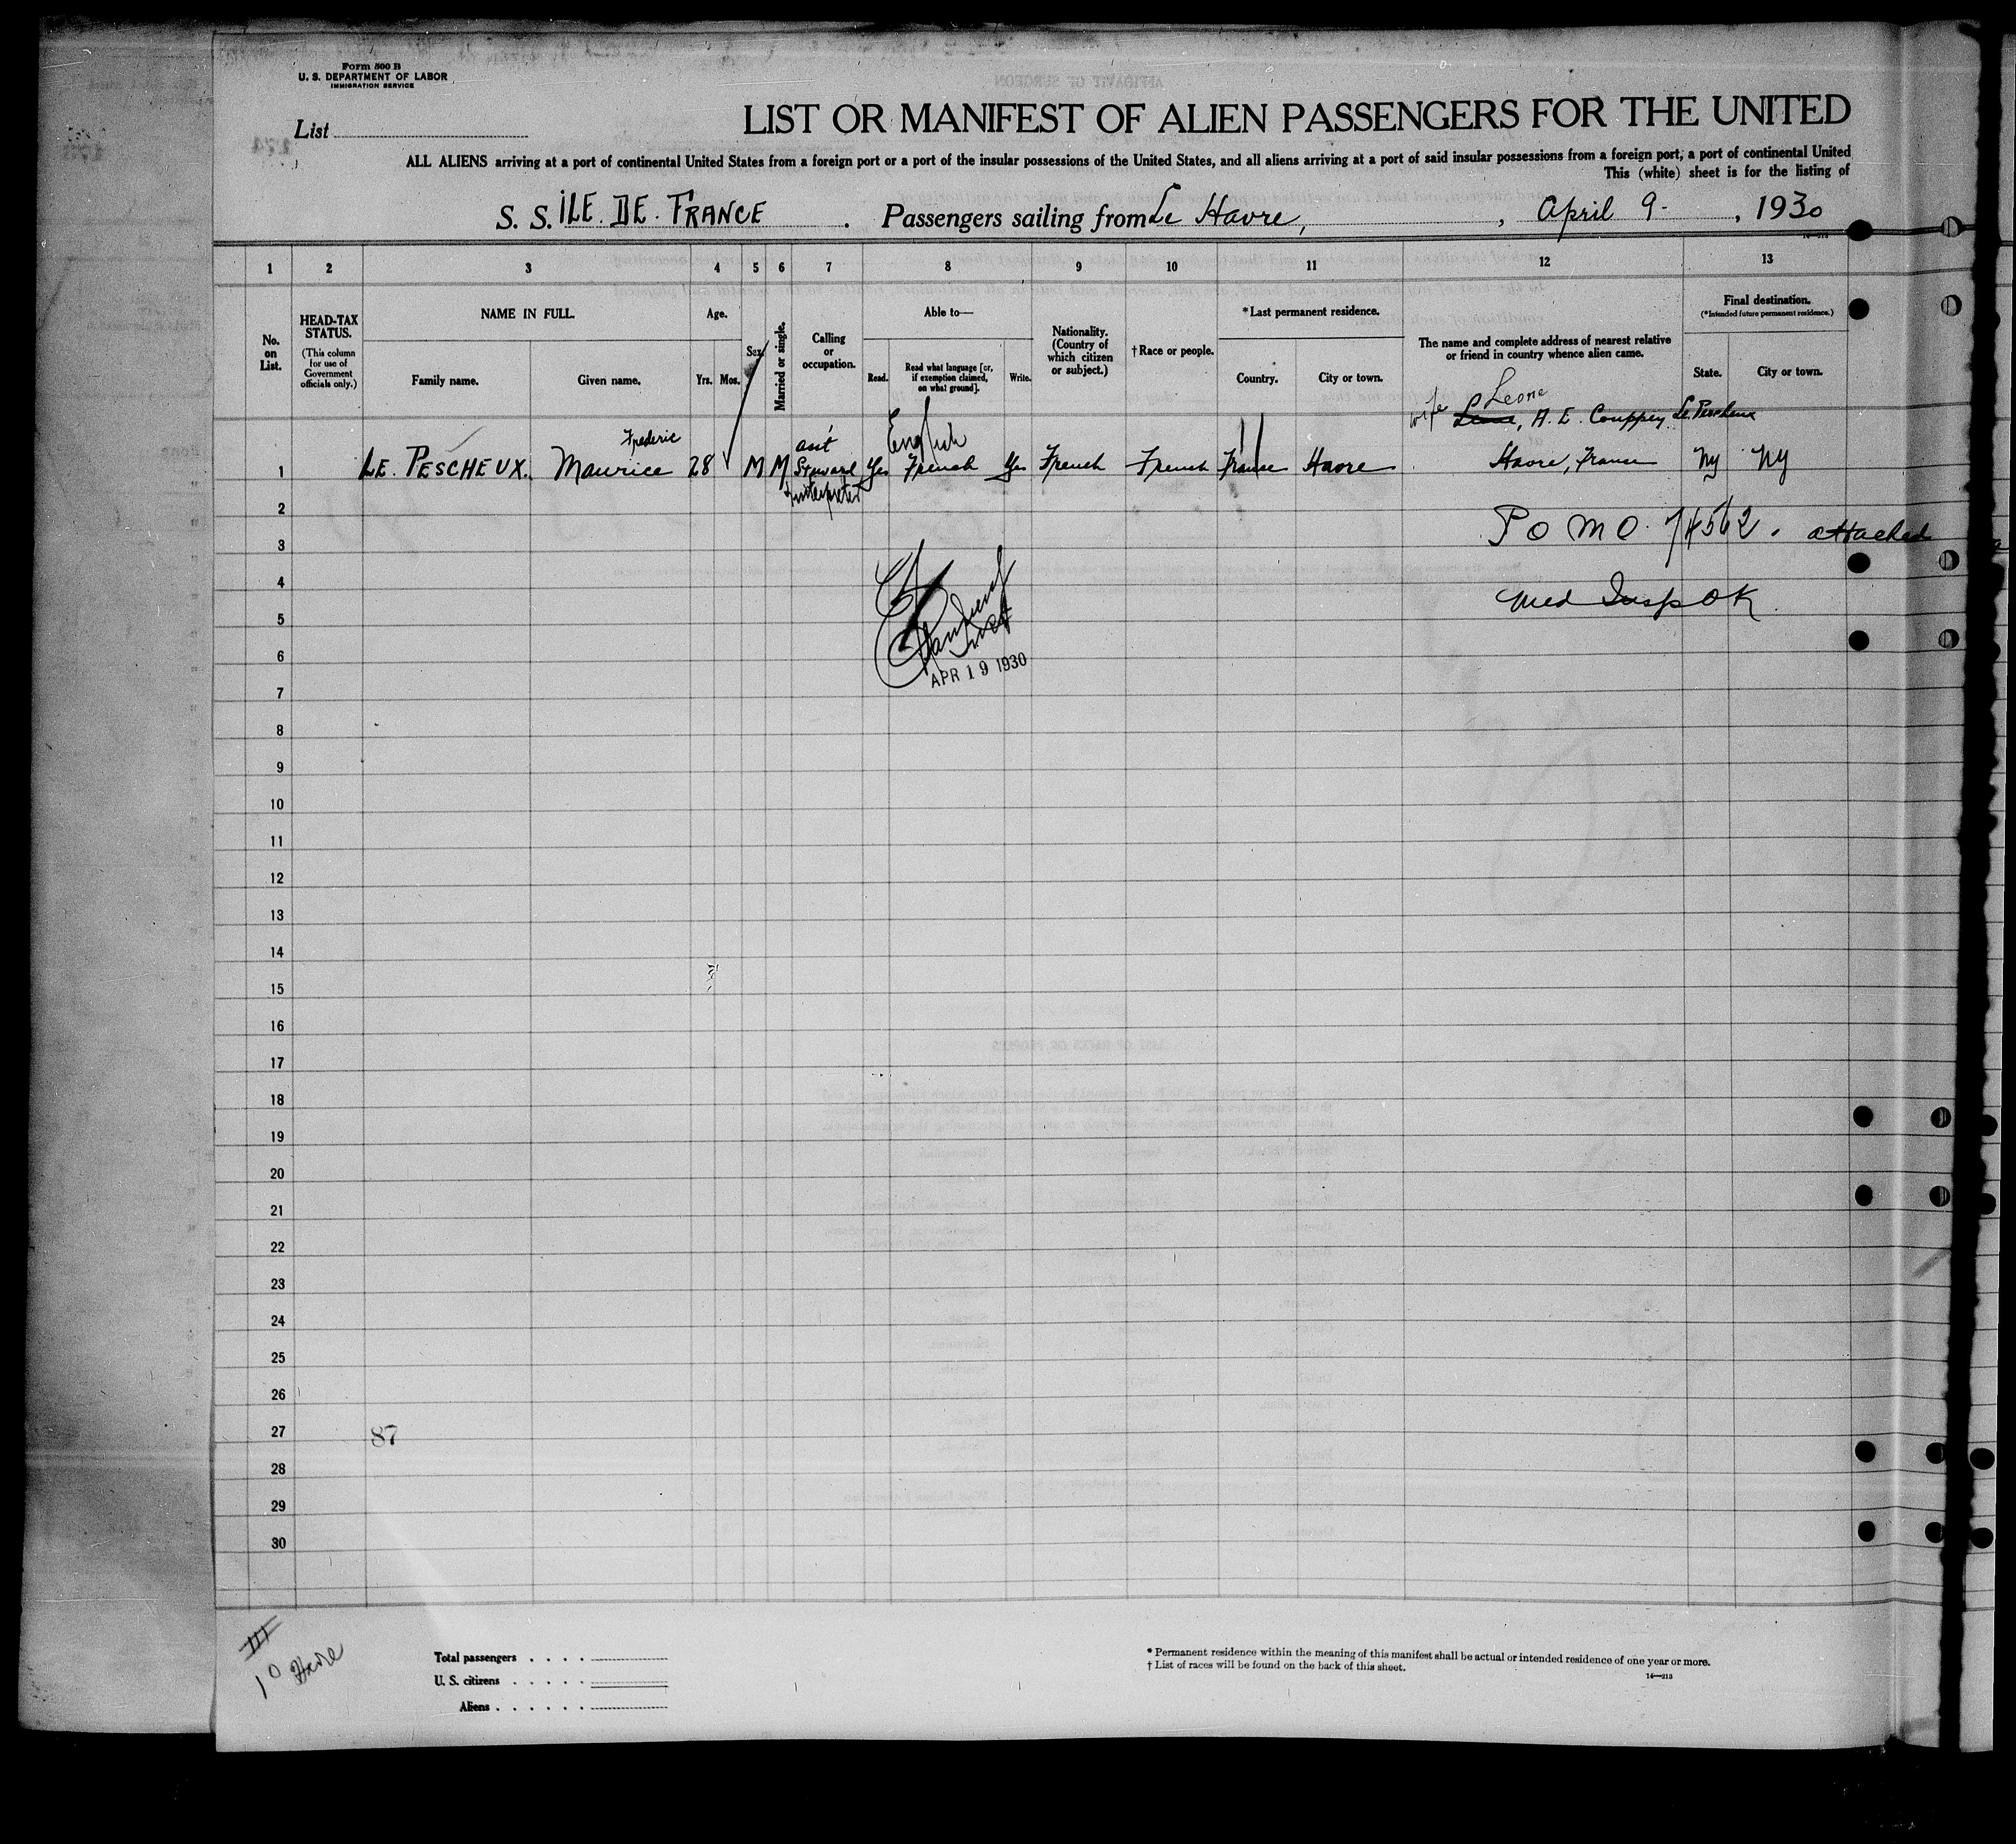 Form 500 B
U. S. DEPARTMENT OF LABOR
IMMIGRATION SERVICE
List
LIST OR MANIFEST OF ALIEN PASSENGERS FOR THE UNITED
ALL ALIENS arriving at a port of continental United States from a foreign port or a port of the insular possessions of the United States, and all aliens arriving at a port of said insular possessions from a foreign port, a port of continental United
This (white) sheet is for the listing of
S. S. ILE. DE. FRANCE. Passengers sailing from Le Havre, , April 9- , 1930
1 2 3 4 5 6 7 8 9 10 11 12 13
No. on List.
HEAD-TAX STATUS.
(This column for use of Government officials only.)
NAME IN FULL.
Family name. Given name.
Age.
Yrs. Mos.
Sex.
Married or single.
Calling or occupation.
Able to—
Read. Read what language [or, if exemption claimed, on what ground]. Write.
Nationality. (Country of which citizen or subject.)
†Race or people.
*Last permanent residence.
Country. City or town.
The name and complete address of nearest relative or friend in country whence alien came.
Final destination.
(*Intended future permanent residence.)
State. City or town.
Leone
wife Leone, A. E. Couppey Le Pescheux
Frederic ast English
1 LE. PESCHEUX. Maurice 28 M M Steward Yes French Yes French French France Havre Havre, France NY NY
Interpreter
2
P O M O. 74562. attached
3
4
Med Insp OK
5
6
APR 19 1930
7
8
9
10
11
12
13
14
15
16
17
18
19
20
21
22
23
24
25
26
27 87
28
29
30
III
10 Havre
Total passengers
U. S. citizens
Aliens
* Permanent residence within the meaning of this manifest shall be actual or intended residence of one year or more.
† List of races will be found on the back of this sheet.
14—213